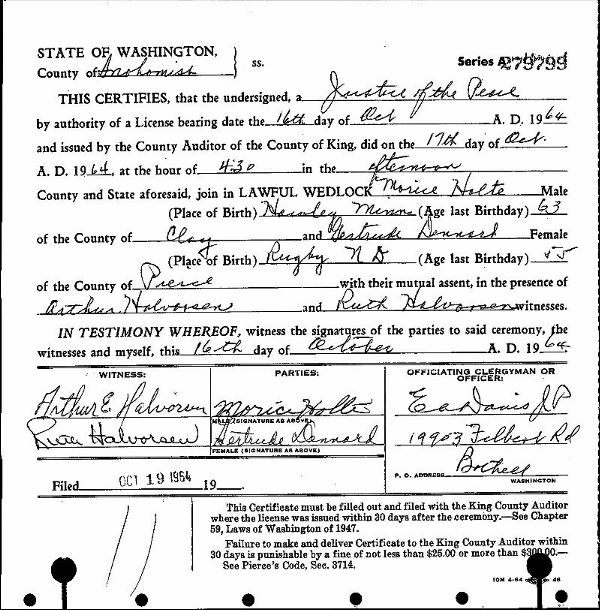 STATE OF WASHINGTON,
County of Snohomish } ss.
Series A 279799
THIS CERTIFIES, that the undersigned, a Justice of the Peace
by authority of a License bearing date the 16th day of Oct A. D. 1964
and issued by the County Auditor of the County of King, did on the 17th day of Oct.
A. D. 1964, at the hour of 4:30 in the afternoon
County and State aforesaid, join in LAWFUL WEDLOCK Morice Holte Male
(Place of Birth) Hawley Minn (Age last Birthday) 63
of the County of Clay and Gertrude Dennard Female
(Place of Birth) Rugby N D (Age last Birthday) 55
of the County of Pierce with their mutual assent, in the presence of
Arthur Halvorsen and Ruth Halvorsen witnesses.
IN TESTIMONY WHEREOF, witness the signatures of the parties to said ceremony, the
witnesses and myself, this 16th day of October A. D. 1964.
WITNESS: PARTIES: OFFICIATING CLERGYMAN OR OFFICER:
Arthur E. Halvorsen Morice Holte E a Davis J P
MALE (SIGNATURE AS ABOVE)
Ruth Halvorsen Gertrude Dennard 19903 Filbert Rd
FEMALE (SIGNATURE AS ABOVE)
Bothell
P. O. ADDRESS WASHINGTON
Filed OCT 19 1964 19
This Certificate must be filled out and filed with the King County Auditor
where the license was issued within 30 days after the ceremony.—See Chapter
59, Laws of Washington of 1947.
Failure to make and deliver Certificate to the King County Auditor within
30 days is punishable by a fine of not less than $25.00 or more than $300.00.—
See Pierce's Code, Sec. 3714.
10M 4-64